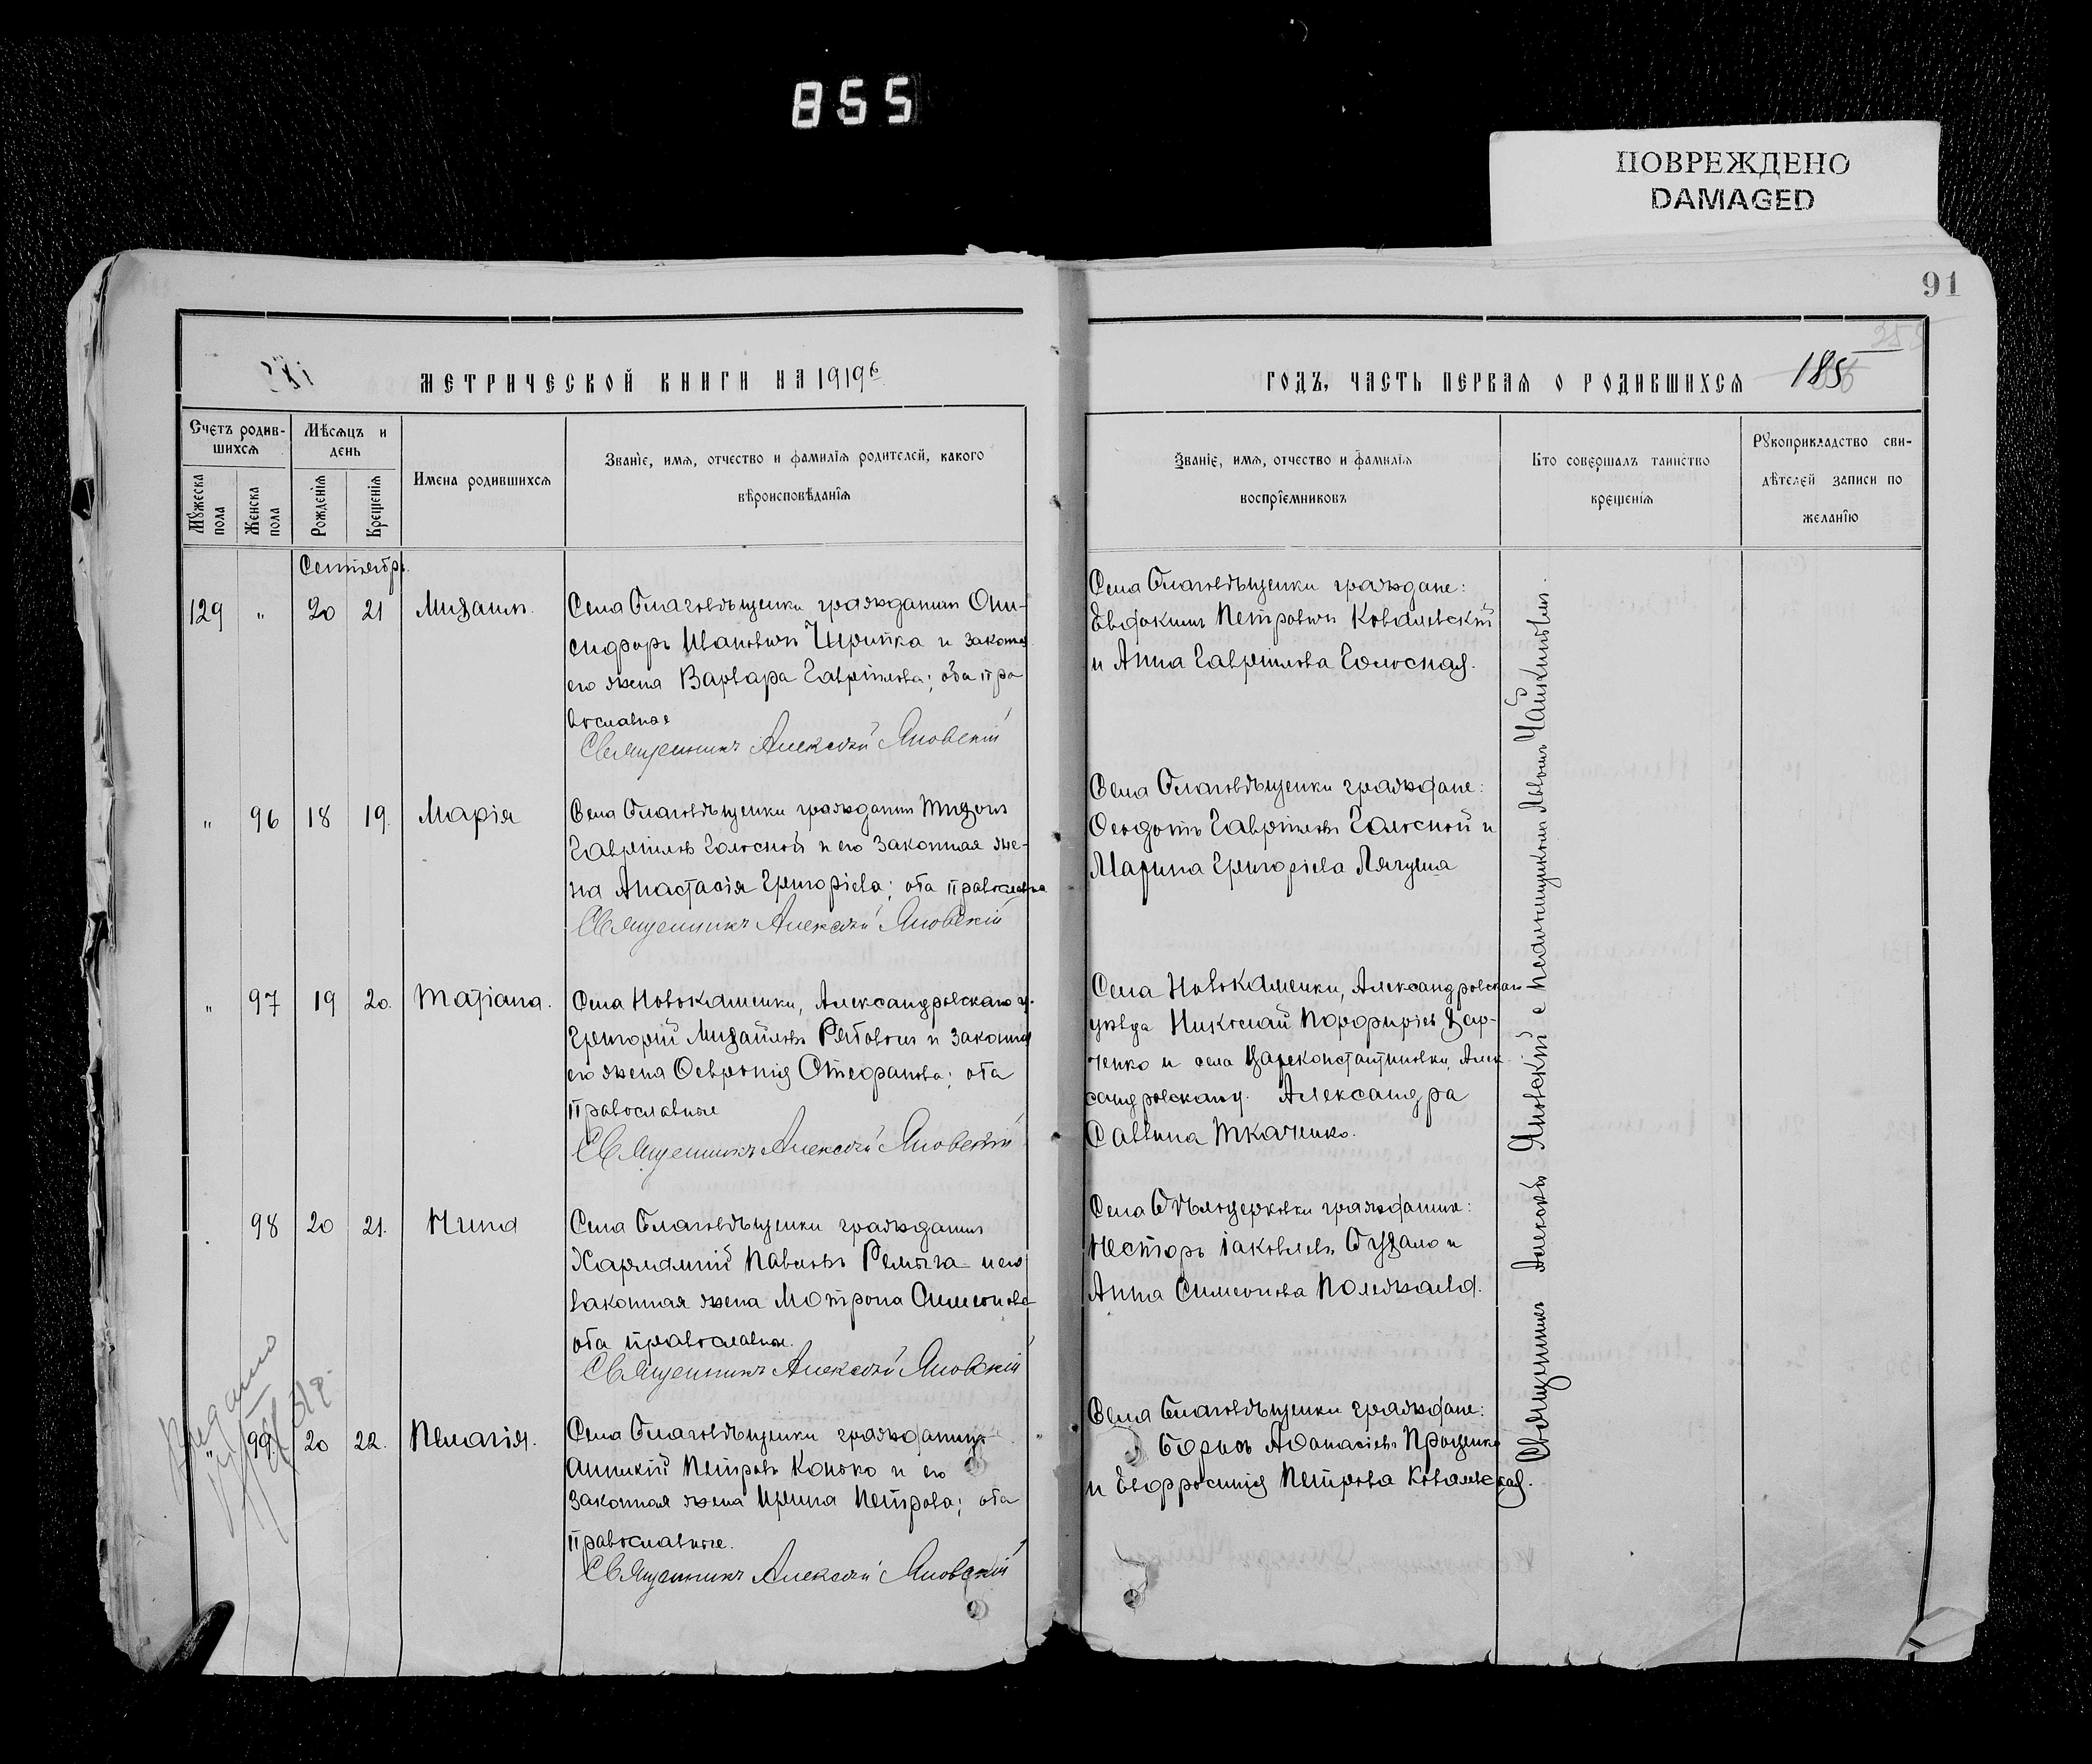 855
ПОВРЕЖДЕНО
DAMAGED
91
МЕТРИЧЕСКОЙ КНИГИ НА 1919 г.
ГОДЪ, ЧАСТЬ ПЕРВАЯ О РОДИВШИХСЯ
185
Счетъ родив-
шихся
Мужеска пола
Женска пола
Мѣсяцъ и
день
Рожденія
Крещенія
Имена родившихся
Званіе, имя, отчество и фамилія родителей, какого
вѣроисповѣданія
Званіе, имя, отчество и фамилія
воспріемниковъ
Кто совершалъ таинство
крещенія
Рукоприкладство сви-
дѣтелей записи по
желанію
Сентябрь.
129 " 20 21 Михаилъ.
Села Благовѣщенки гражданинъ Они-
сифоръ Ивановъ Чирипка и законная
его жена Варвара Гавріилова; оба пра
вославные
Священникъ Алексѣй Яновскій
Села Благовѣщенки граждане:
Евфокимъ Петровъ Ковалевскій
и Анна Гавріилова Голосная.
" 96 18 19. Марія
Села Благовѣщенки гражданинъ Тихонъ
Гавріиловъ Голосной и его законная же-
на Анастасія Григоріева; оба православна
Священникъ Алексѣй Яновскій
Села Благовѣщенки граждане:
Феодотъ Гавріиловъ Голосной и
Марина Григоріева Лягуша
" 97 19 20. Татіана.
Села Новокаменки, Александровскаго у.
Григорій Михайловъ Рябовол и законная
его жена Февронія Стефанова; оба
православные
Священникъ Алексѣй Яновскій
Села Новокаменки, Александровскаго
уѣзда Николай Порфиріевъ Хар-
ченко и села Цареконстантиновки, Алек-
сандровскаго у. Александра
Саввина Ткаченко.
98 20 21. Нина
Села Благовѣщенки гражданинъ
Харлампій Павловъ Ремыга и его
законная жена Мотрона Симеонова
оба православные.
Священникъ Алексѣй Яновскій
Села Бѣлоцерковки граждане:
Несторъ Іаковлевъ
Анна Симеонова
" 99 20 22. Пелагія.
Села Благовѣщенки гражданинъ
Аникій Петровъ Конько и его
законная жена Ирина Петрова; оба
православные.
Священникъ Алексѣй Яновскій
Села Благовѣщенки граждане:
Борисъ Афанасіевъ Проценко
и Евфросинія Петрова Ковалевская.
Священникъ Алексѣй Яновскій с псаломщикомъ Львомъ Чайкинымъ.